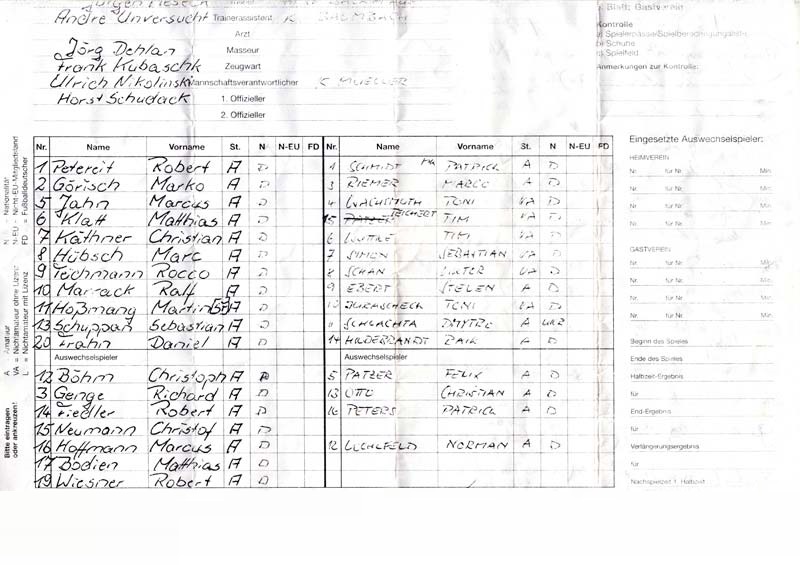 Andre Unversucht Trainerassistent K
Arzt
Jörg Dehlan Masseur
Frank Kubaschk Zeugwart
Ulrich Nikolinski Mannschaftsverantwortlicher K MUELLER
Horst Schudack 1. Offizieller
2. Offizieller
Blatt: Gastverein
Kontrolle
a) Spielerpässe/Spielberechtigungsliste
b) Schuhe
c) Spielfeld
Anmerkungen zur Kontrolle:
Nr. Name Vorname St. N N-EU FD Nr. Name Vorname St. N N-EU FD
1 Petereit Robert A D 1 SCHMIDT PATRICK A D
2 Görisch Marko A D 3 RIEMER MARCO A D
5 Jahn Marcus A D 4 WACHSMUTH TONI VA D
6 Klatt Matthias A D 15 TEICHERT TIM VA D
7 Käthner Christian A D 6 WUTTKE TIM VA D
8 Hübsch Marc A D 7 SIMON SEBASTIAN VA D
9 Teichmann Rocco A D 8 SCHAN VA D
10 Marrack Ralf A D 9 EBERT STEFEN A D
11 Hoßmang Martin A D 10 TONI VA D
13 Schuppan Sebastian A D 11 SCHLACHTA DMYTRO A UKR
20 Frahn Daniel A D 14 HILDEBRANDT MAIK A D
Auswechselspieler Auswechselspieler
12 Böhm Christoph A D 5 PATZER FELIX A D
3 Genge Richard A D 13 OTTO CHRISTIAN A D
14 Fiedler Robert A D 16 PETERS PATRICK A D
15 Neumann Christof A D
16 Hoffmann Marcus A D 12 LUCHFELD NORMAN A D
17 Bodien Matthias A D
19 Wiesner Robert A D
Eingesetzte Auswechselspieler:
HEIMVEREIN
Nr. für Nr. Min.
Nr. für Nr. Min.
Nr. für Nr. Min.
Nr. für Nr. Min.
GASTVEREIN
Nr. für Nr. Min.
Nr. für Nr. Min.
Nr. für Nr. Min.
Nr. für Nr. Min.
Beginn des Spieles
Ende des Spieles
Halbzeit-Ergebnis
für
End-Ergebnis
für
Verlängerungsergebnis
für
Nachspielzeit 1. Halbzeit
N = Nationalität
N-EU = Nicht-EU-Mitgliedsland
FD = Fußballdeutscher
A = Amateur
VA = Nichtamateur ohne Lizenz
L = Nichtamateur mit Lizenz
Bitte eintragen
oder ankreuzen!